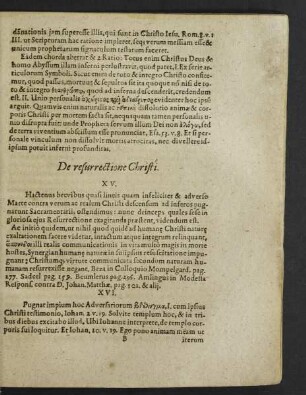 dãnationis jam superesse illis, qui sunt in Christo Jesu, Rom. 8. v. 1
III. ut Scripturam hac ratione impleret, seq; verum messiam esse &
unicum prophetiarum signaculum testatum faceret.
Eadem chorda aberrat & 2 Ratio: Totus enim Christus Deus &
homo Abyssum illam inferni perlustravit, quod patet, I. Ex serie ar-
ticulorum Symboli. Sicut enim de toto & integro Christo confite-
mur, quod passus, mortuus & sepultus sit ita quoque nõ nisi de to-
to & integro quòd ad inferna descenderit, credendum
est. II. Unio personalis evidenter hoc ipsũ
arguit. Quamvis enim naturalis dissolutio animæ & cor-
poris Christi per mortem facta sit, neququam tamen personalis u-
nio disrupta fuit: unde Propheta servum illum Dei non sed
de terra viventium abscissum esse pronunciat, Esa, 53. v. 8. Et si perso-
nale vinculum non dissolvit mors atrocitas, nec divellere id-
ipsum potuit inferni profunditas.
De resurrectione Christi.
XV.
Hactenus brevibus quasi lineis quam infeliciter & adverso
Marte contra verum ac realem Christi descensum ad inferos pug-
narint Sacramentarii, ostendimus: nunc deinceps quales sese in
gloriosa ejus Resurrectione exagitanda præstent, videndum est.
Ac initiò quidem, ut nihil quod quidẽ ad humanæ Christi naturæ
exaltationem facere videatur, intactum atque integrum relinquant,
illi realis communicationis in vita mulò magis in morte
hostes, Synergian humanæ naturæ in se ipsum resuscitatione impu-
gnant; Christumq; virtute communicata secundum naturam hu-
manam resurrexisse negant, Beza in Colloquio Mompelgard. pag.
277. Sadeel pag. 159. Beumlerus pag. 296. Ansingius in Modesta
Respons. contra D. Johan. Matthæ, pag. 102. & alij.
XVI.
Pugnat impium hoc Adversariorum I. cum ipsius
Christi testimonio, Johan. 2. v. 19. Solvite templum hoc, & in tri-
bus diebus excitabo illud, Ubi Johanne interprete, de templo cor-
poris sui loquitur. Et Johan. 10. v. 19. Ego pono animam meam ut
B iterum